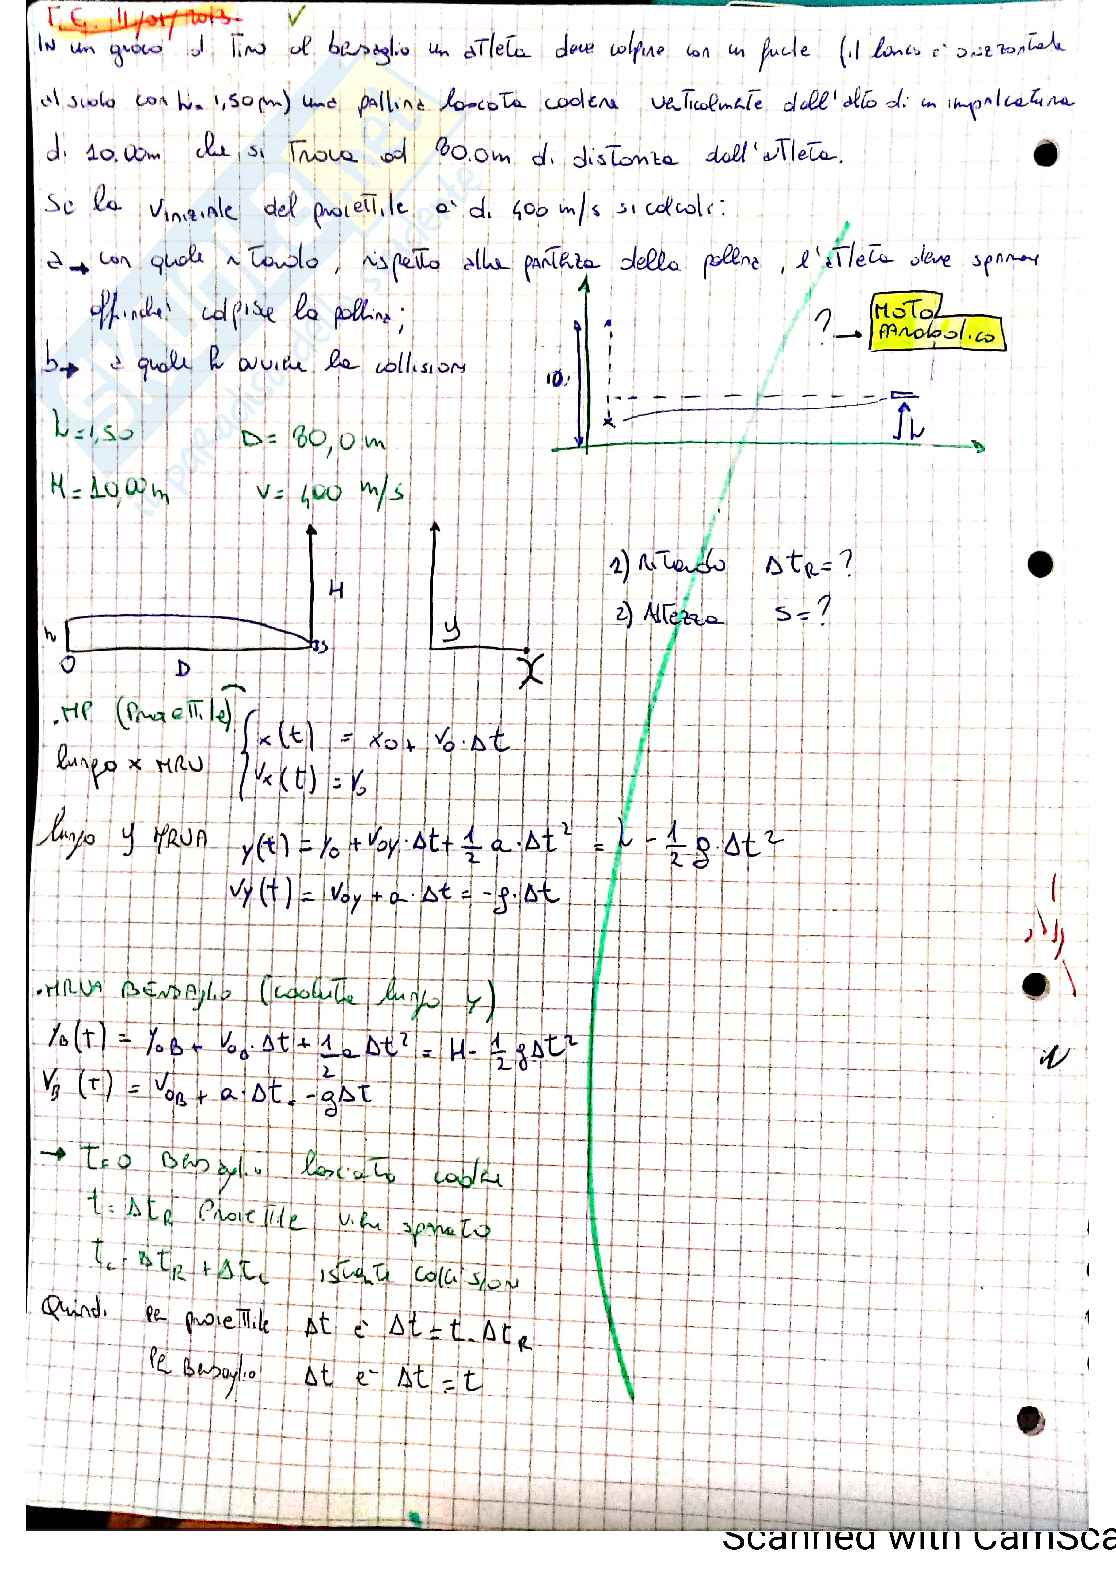 T.E. 11/01/2013.
IN un gioco di Tiro al bersaglio un atleta deve colpire con un fucile (il lancio è orizzontale
al suolo con h= 1,50 m) una pallina lasciata cadere verticalmente dall'alto di un impalcatura
di 10.00m che si trova ad 80.0m di distanza dall'atleta.
Se la Viniziale del proiettile è di 400 m/s si calcoli:
a → con quale ritardo, rispetto alla partenza della pallina, l'atleta deve sparare
affinché colpisca la pallina;
b → a quale h avviene la collisione
? → MOTO PARABOLICO
10.
h
h=1,50 D= 80,0 m
H=10,00m V= 400 m/s
H
h
O D B
y
X
1) Ritardo ΔtR=?
2) Altezza S=?
.MP (Proiettile)
x(t) = x0 + V0·Δt
lungo x MRU
Vx(t) = V0
lungo y MRUA y(t) = y0 + V0y·Δt + 1/2 a·Δt² = h - 1/2 g·Δt²
Vy(t) = V0y + a·Δt = -g·Δt
.MRUA BERSAGLIO (caduta lungo y)
yB(t) = y0B + V0B·Δt + 1/2 a Δt² = H - 1/2 gΔt²
VB(t) = V0B + a·Δt = -gΔt
→ t=0 Bersaglio lasciato cadere
t= ΔtR Proiettile viene sparato
tc = ΔtR + Δtc istante collisione
Quindi per proiettile Δt è Δt = t-ΔtR
Per Bersaglio Δt è Δt = t
Scanned with CamSca